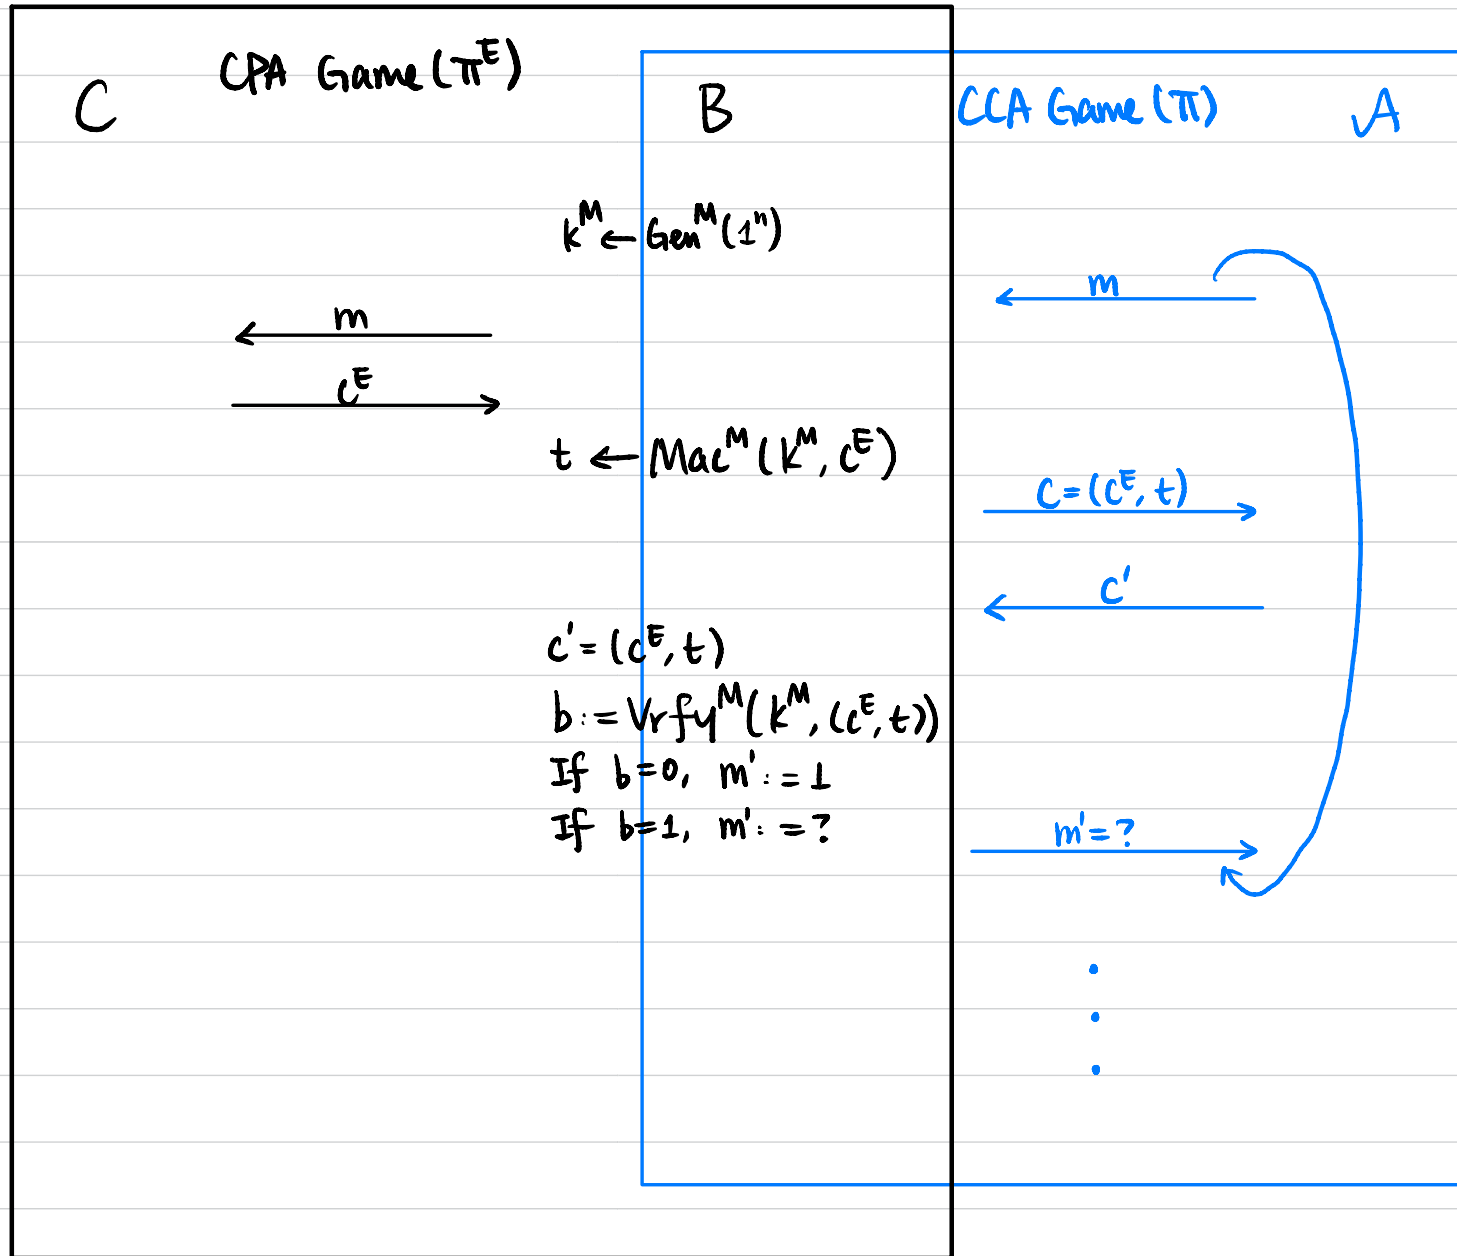 CPA Game(π^E)
C
B
CCA Game(π)
A
k^M ← Gen^M(1^n)
m
m
c^E
t ← Mac^M(k^M, c^E)
c=(c^E, t)
c'
c'=(c^E, t)
b:=Vrfy^M(k^M, (c^E, t))
If b=0, m':=⊥
If b=1, m':=?
m'=?